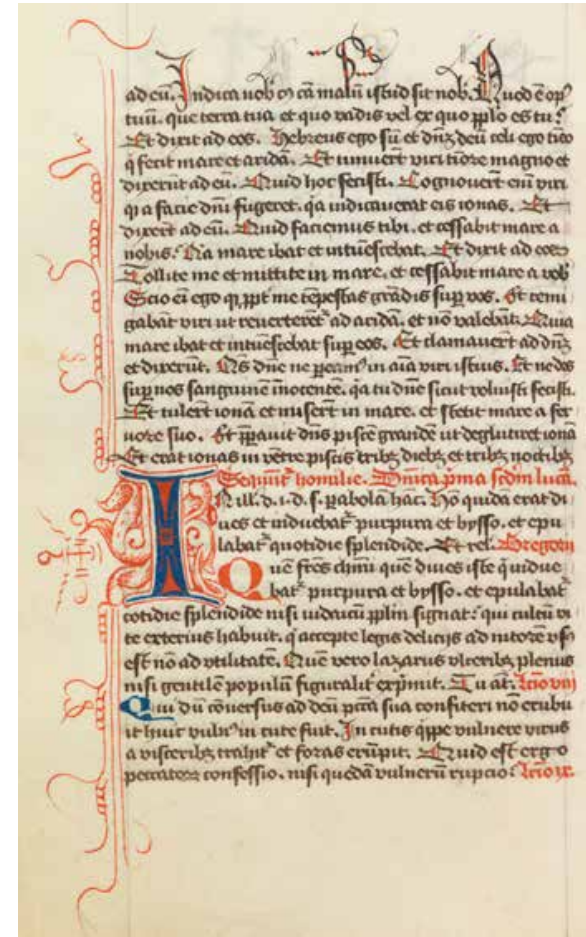 ad eū. Indica nob̄ cꝰ cā malū istud sit nob̄. Quod ē opꝰ
tuū. que terra tua et quo vadis vel ex quo pplo es tu?
Et dixit ad eos. Hebreus ego sū et dn̄ʒ deū celi ego tīeo
q̄ fecit mare et aridā. Et timuerūt viri tīore magno et
dixerūt ad eū. Quid hoc fecisti. Cognoverūt enī viri
qꝫ a facie dn̄i fugeret. qꝛ indicauerat eis ionas. Et
dixerūt ad eū. Quid faciemus tibi. et cessabit mare a
nobis? Qꝛ mare ibat et intūescebat. Et dixit ad eos
Tollite me et mittite in mare. et cessabit mare a vob̄
Scio eī ego qꝫ ppt me tēpestas grādis sup vos. Et remi
gabāt viri ut reverteret᷑ ad aridā. et nō valebāt. Quia
mare ibat et intūescebat sup eos. Et clamauerūt ad dn̄ʒ
et dixerūt. Q̄s dn̄e ne peamꝰ in aīa viri istius. Et ne des
sup nos sanguinē īnocentē. qꝛ tu dn̄e sicut voluisti fecisti.
Et tulerūt ionā et miserūt in mare. et stetit mare a fer
uore suo. Et ppauit dn̄s piscē grandē ut deglutiret ionā
Et erat ionas in vētre piscis tribꝫ diebꝫ et tribꝫ noctibꝫ
Sequūt᷑ homilie. Dn̄ica p̄ma scdm̄ lucā.
IN ill. d. i. d. s. pabolā hāc. Hō quidā erat di
ues et induebat᷑ purpura et bysso. et epu
labat᷑ quotidie splendide. Et rel. Gregorii
Quē frēs c̄mi quē diues iste q̇ indue
bat᷑ purpura et bysso. et epulabat᷑
cotidie splendide nisi iudaicū pplm̄ signat? qui cultū vi
te exterius habuit. q̇ accepte legis delicijs ad nitorē vsꝰ
est nō ad vtilitatē. Quē vero lazarus vlceribꝫ plenus
nisi gentilē populū figuralit᷑ exp̄mit. Tu aūt. lctio viii
Qui dū cōuersus ad deū pctā sua confiteri nō erubu
it huic vulnꝰ in cute fuit. In cutis q̇ppe vulnere virus
a visceribꝫ trahit᷑ et foras erūpit. Quid est ergo
peccatoꝝ confessio. nisi quedā vulnerū rupcio? lctio ix.